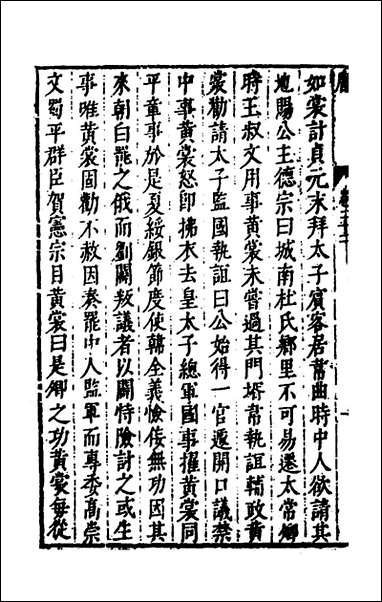 如裳計貞元末拜太子賓客居韋曲時中人欲請其
地賜公主德宗曰城南杜氏鄉里不可易遷太常卿
時王叔文用事黃裳未嘗過其門壻韋執誼輔政黃
裳勸請太子監國執誼曰公始得一官遽開口議禁
中事黃裳怒即拂衣去皇太子總軍國事擢黃裳同
平章事於是夏綏銀節度使韓全義憸佞無功因其
來朝白罷之俄而劉闢叛議者以闢恃險討之或生
事唯黃裳固勸不赦因奏罷中人監軍而專委高崇
文蜀平群臣賀憲宗目黃裳曰是卿之功黃裳每從